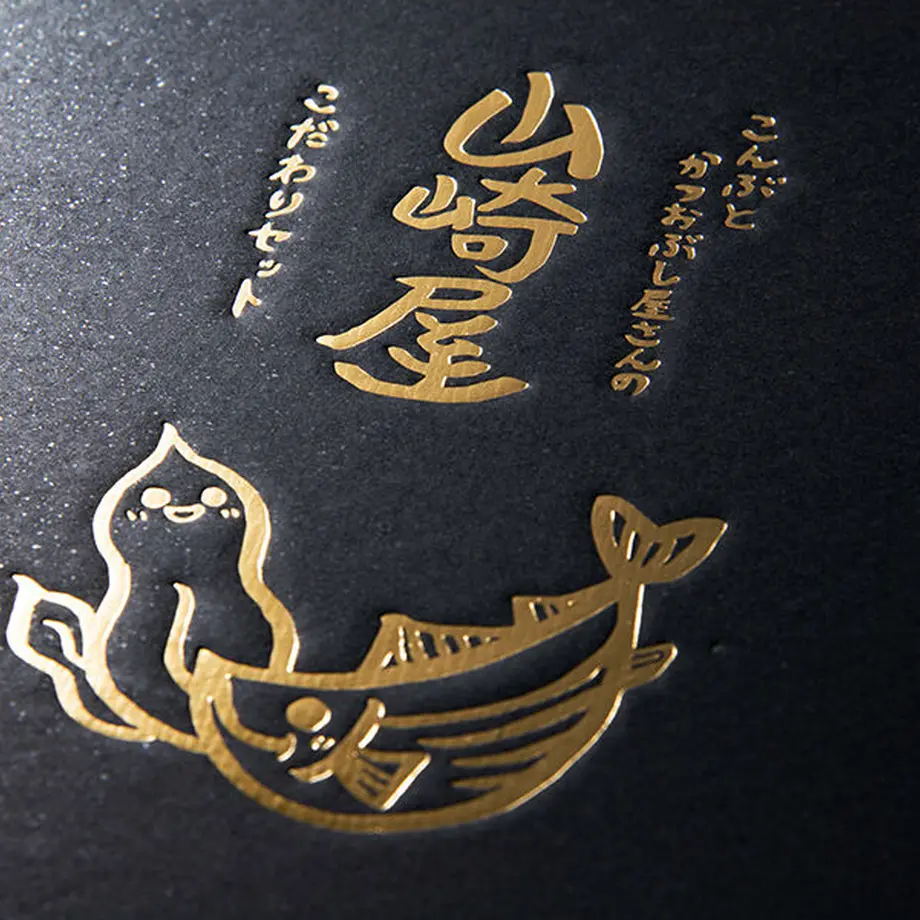 こんぶと
かつおぶし屋さんの
山崎屋
こだわりセット